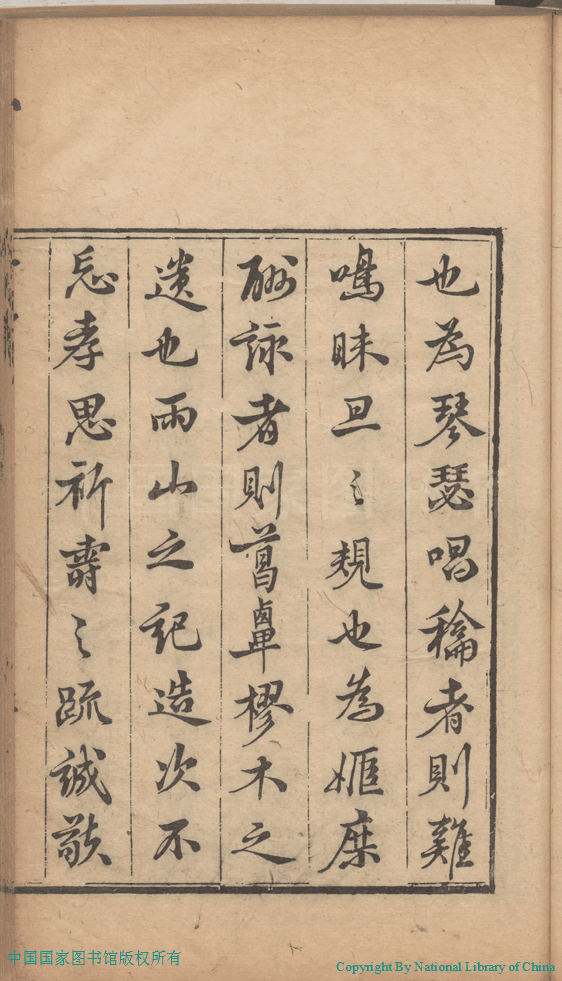 也為琴瑟唱龢者則雞
鳴昧旦之規也為姬庶
酬詠者則葛覃樛木之
遺也雨山之記造次不
忘孝思祈壽之疏誠敬
中国国家图书馆版权所有
Copyright By National Library of China